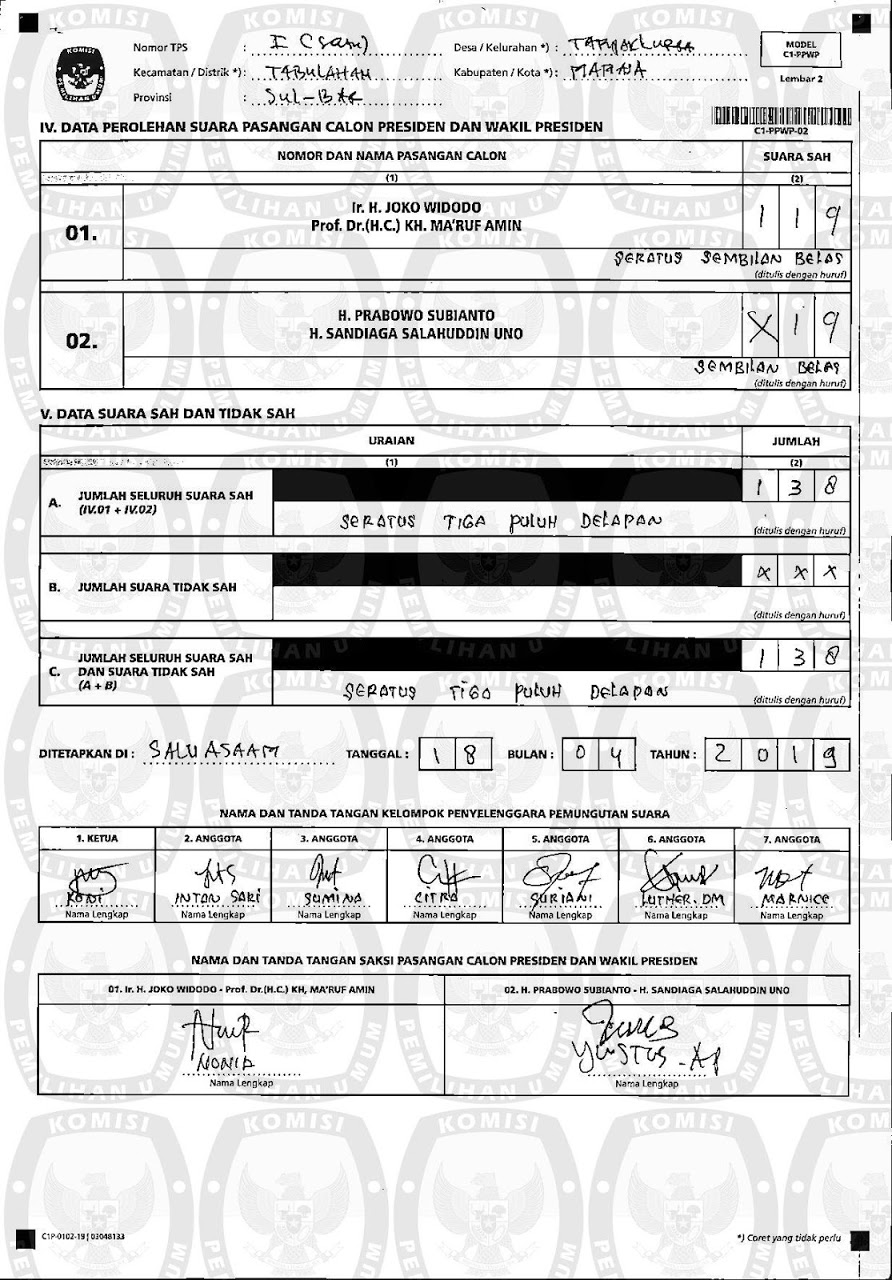 KOMISI
PEMILIHAN UMUM
Nomor TPS : I (satu)
Desa / Kelurahan *) :
Kecamatan / Distrik *) : TABULAHAN
Kabupaten / Kota *) : MAMASA
Provinsi : SUL-BAR
MODEL
C1-PPWP
Lembar 2
IV. DATA PEROLEHAN SUARA PASANGAN CALON PRESIDEN DAN WAKIL PRESIDEN
C1-PPWP-02
NOMOR DAN NAMA PASANGAN CALON SUARA SAH
(1) (2)
01. Ir. H. JOKO WIDODO
Prof. Dr.(H.C.) KH. MA'RUF AMIN
1 1 9
SERATUS SEMBILAN BELAS
(ditulis dengan huruf)
02. H. PRABOWO SUBIANTO
H. SANDIAGA SALAHUDDIN UNO
X 1 9
SEMBILAN BELAS
(ditulis dengan huruf)
V. DATA SUARA SAH DAN TIDAK SAH
URAIAN JUMLAH
(1) (2)
A. JUMLAH SELURUH SUARA SAH
(IV.01 + IV.02)
1 3 8
SERATUS TIGA PULUH DELAPAN
(ditulis dengan huruf)
B. JUMLAH SUARA TIDAK SAH
X X X
(ditulis dengan huruf)
C. JUMLAH SELURUH SUARA SAH
DAN SUARA TIDAK SAH
(A + B)
1 3 8
SERATUS TIGO PULUH DELAPAN
(ditulis dengan huruf)
DITETAPKAN DI : SALUASAAM TANGGAL : 1 8 BULAN : 0 4 TAHUN : 2 0 1 9
NAMA DAN TANDA TANGAN KELOMPOK PENYELENGGARA PEMUNGUTAN SUARA
1. KETUA 2. ANGGOTA 3. ANGGOTA 4. ANGGOTA 5. ANGGOTA 6. ANGGOTA 7. ANGGOTA
RONI INTAN SARI SUMINA CITRA SURIANI LUTHER. DM MARNICE
Nama Lengkap Nama Lengkap Nama Lengkap Nama Lengkap Nama Lengkap Nama Lengkap Nama Lengkap
NAMA DAN TANDA TANGAN SAKSI PASANGAN CALON PRESIDEN DAN WAKIL PRESIDEN
01. Ir. H. JOKO WIDODO - Prof. Dr.(H.C.) KH, MA'RUF AMIN
02. H. PRABOWO SUBIANTO - H. SANDIAGA SALAHUDDIN UNO
NONIA YUSTUS. AP
Nama Lengkap Nama Lengkap
C1P-0102-19 | 03048133
*) Coret yang tidak perlu